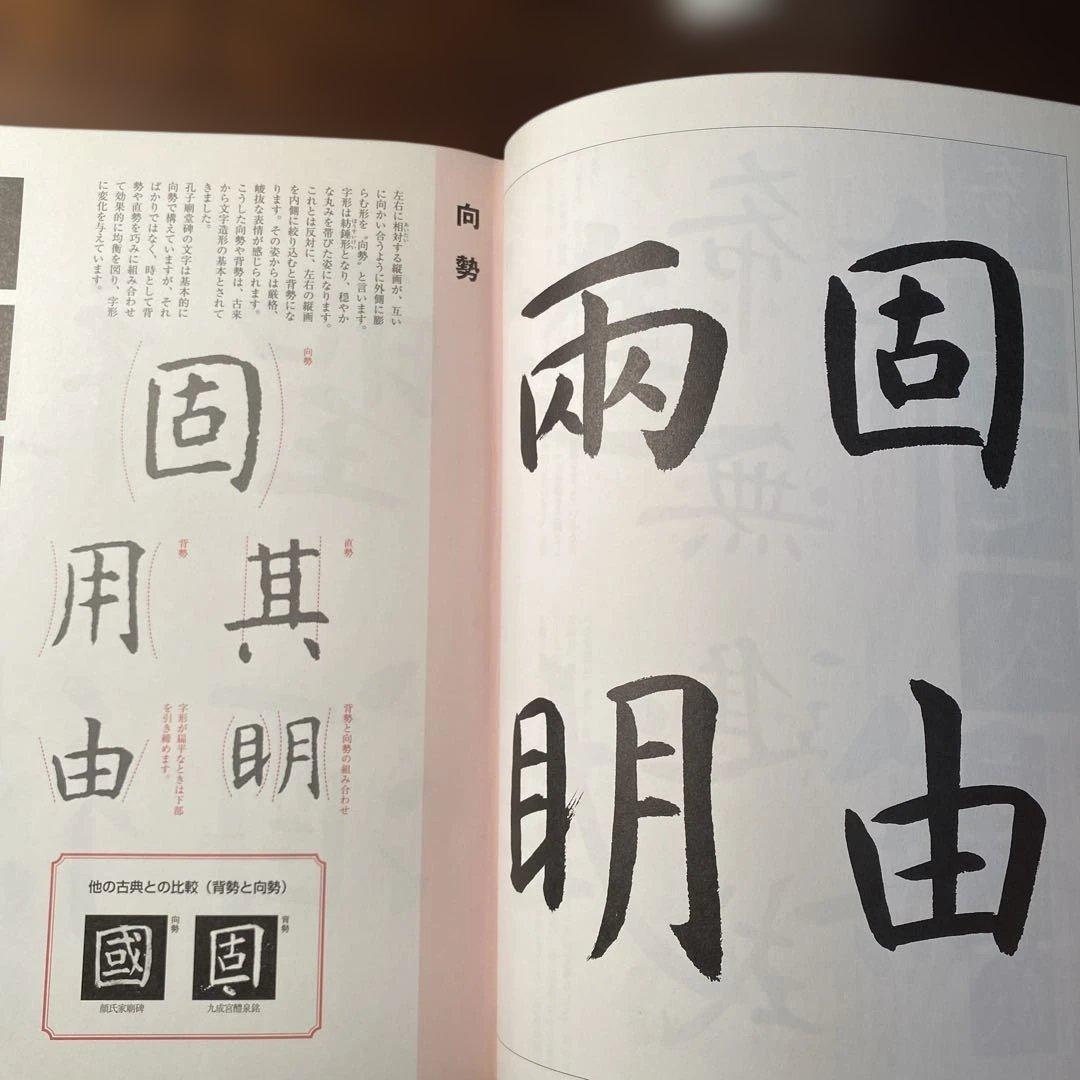 固
由
兩
明
向勢
左右に相対する縦画が、互い
に向かい合うように外側に膨
らむ形を〝向勢〟と言います。
字形は紡錘形となり、穏やか
な丸みを帯びた姿になります。
これとは反対に、左右の縦画
を内側に絞り込むと背勢にな
ります。その姿からは厳格、
峻抜な表情が感じられます。
こうした向勢や背勢は、古来
から文字造形の基本とされて
きました。
孔子廟堂碑の文字は基本的に
向勢で構えていますが、それ
ばかりではなく、時として背
勢や直勢を巧みに組み合わせ
て効果的に均衡を図り、字形
に変化を与えています。
向勢
固
直勢
其
背勢
用
背勢と向勢の組み合わせ
明
字形が扁平なときは下部
を引き締めます。
由
他の古典との比較（背勢と向勢）
背勢
固
九成宮醴泉銘
向勢
國
顔氏家廟碑